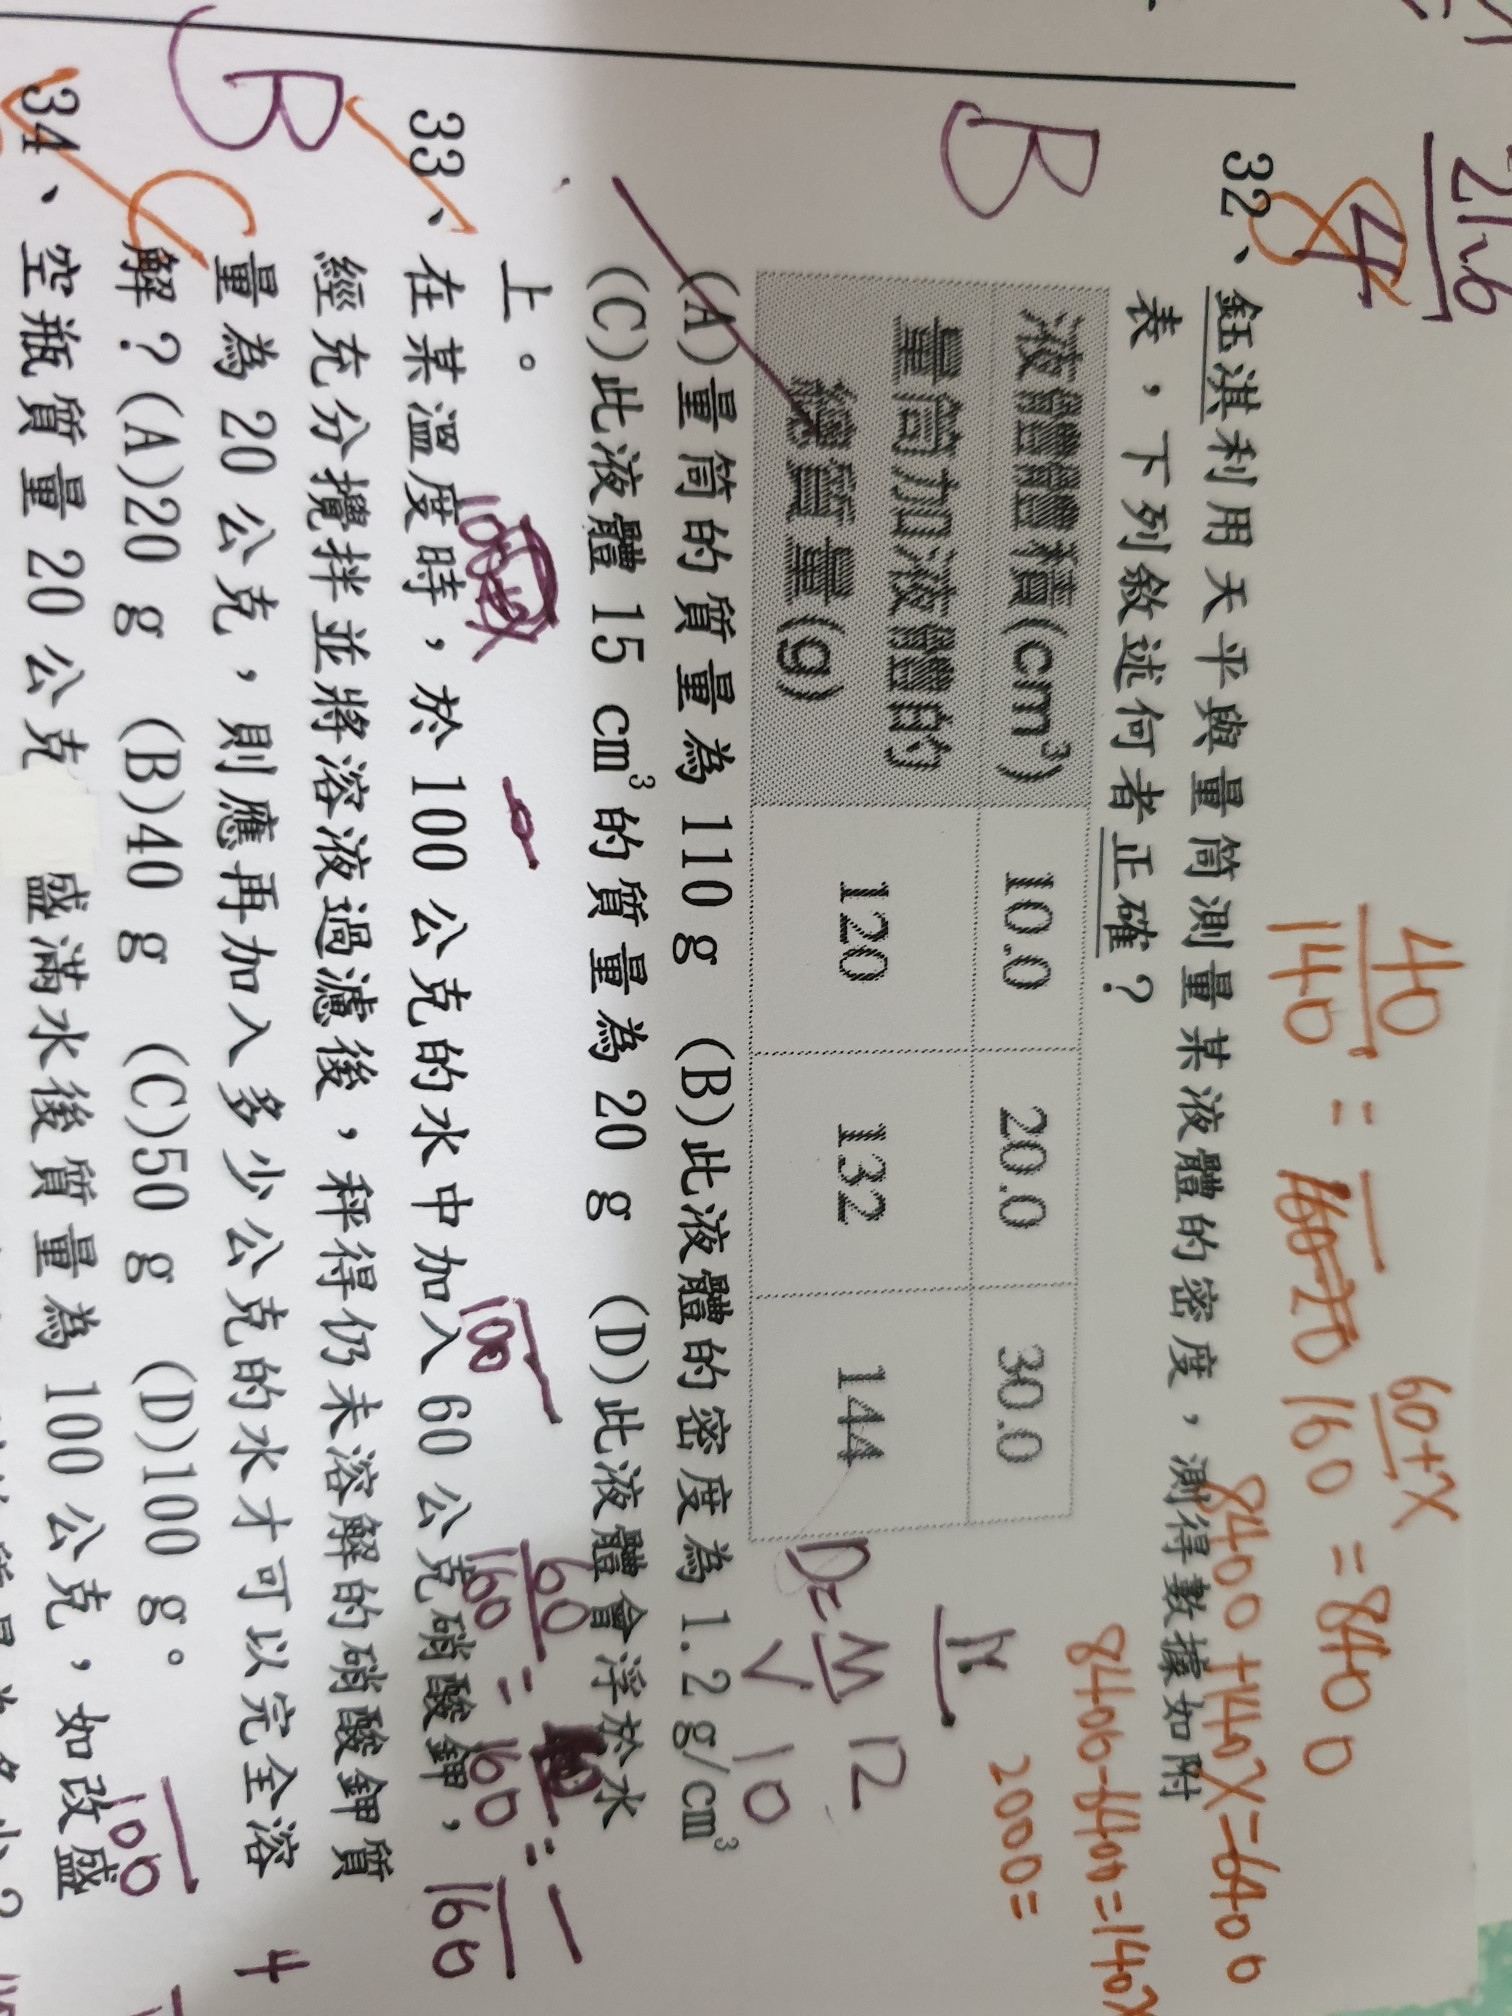 21.6
84
40/140 = 160 60+X = 8400
8400+140X=6400
8400-6400=140X
2000=
B
32、鈺淇利用天平與量筒測量某液體的密度，測得數據如附
表，下列敘述何者正確？
液體體積(cm³) 10.0 20.0 30.0
量筒加液體的
總質量(g) 120 132 144
D=M/V 12/10
(A)量筒的質量為 110 g (B)此液體的密度為 1.2 g/cm³
(C)此液體 15 cm³的質量為 20 g (D)此液體會浮於水
上。
100
60/160 = /160 = /160
B
33、在某溫度時，於 100 公克的水中加入 60 公克硝酸鉀，
經充分攪拌並將溶液過濾後，秤得仍未溶解的硝酸鉀質
量為 20 公克，則應再加入多少公克的水才可以完全溶
C
解？(A)20 g (B)40 g (C)50 g (D)100 g。
100
34、空瓶質量 20 公克 盛滿水後質量為 100 公克，如改盛